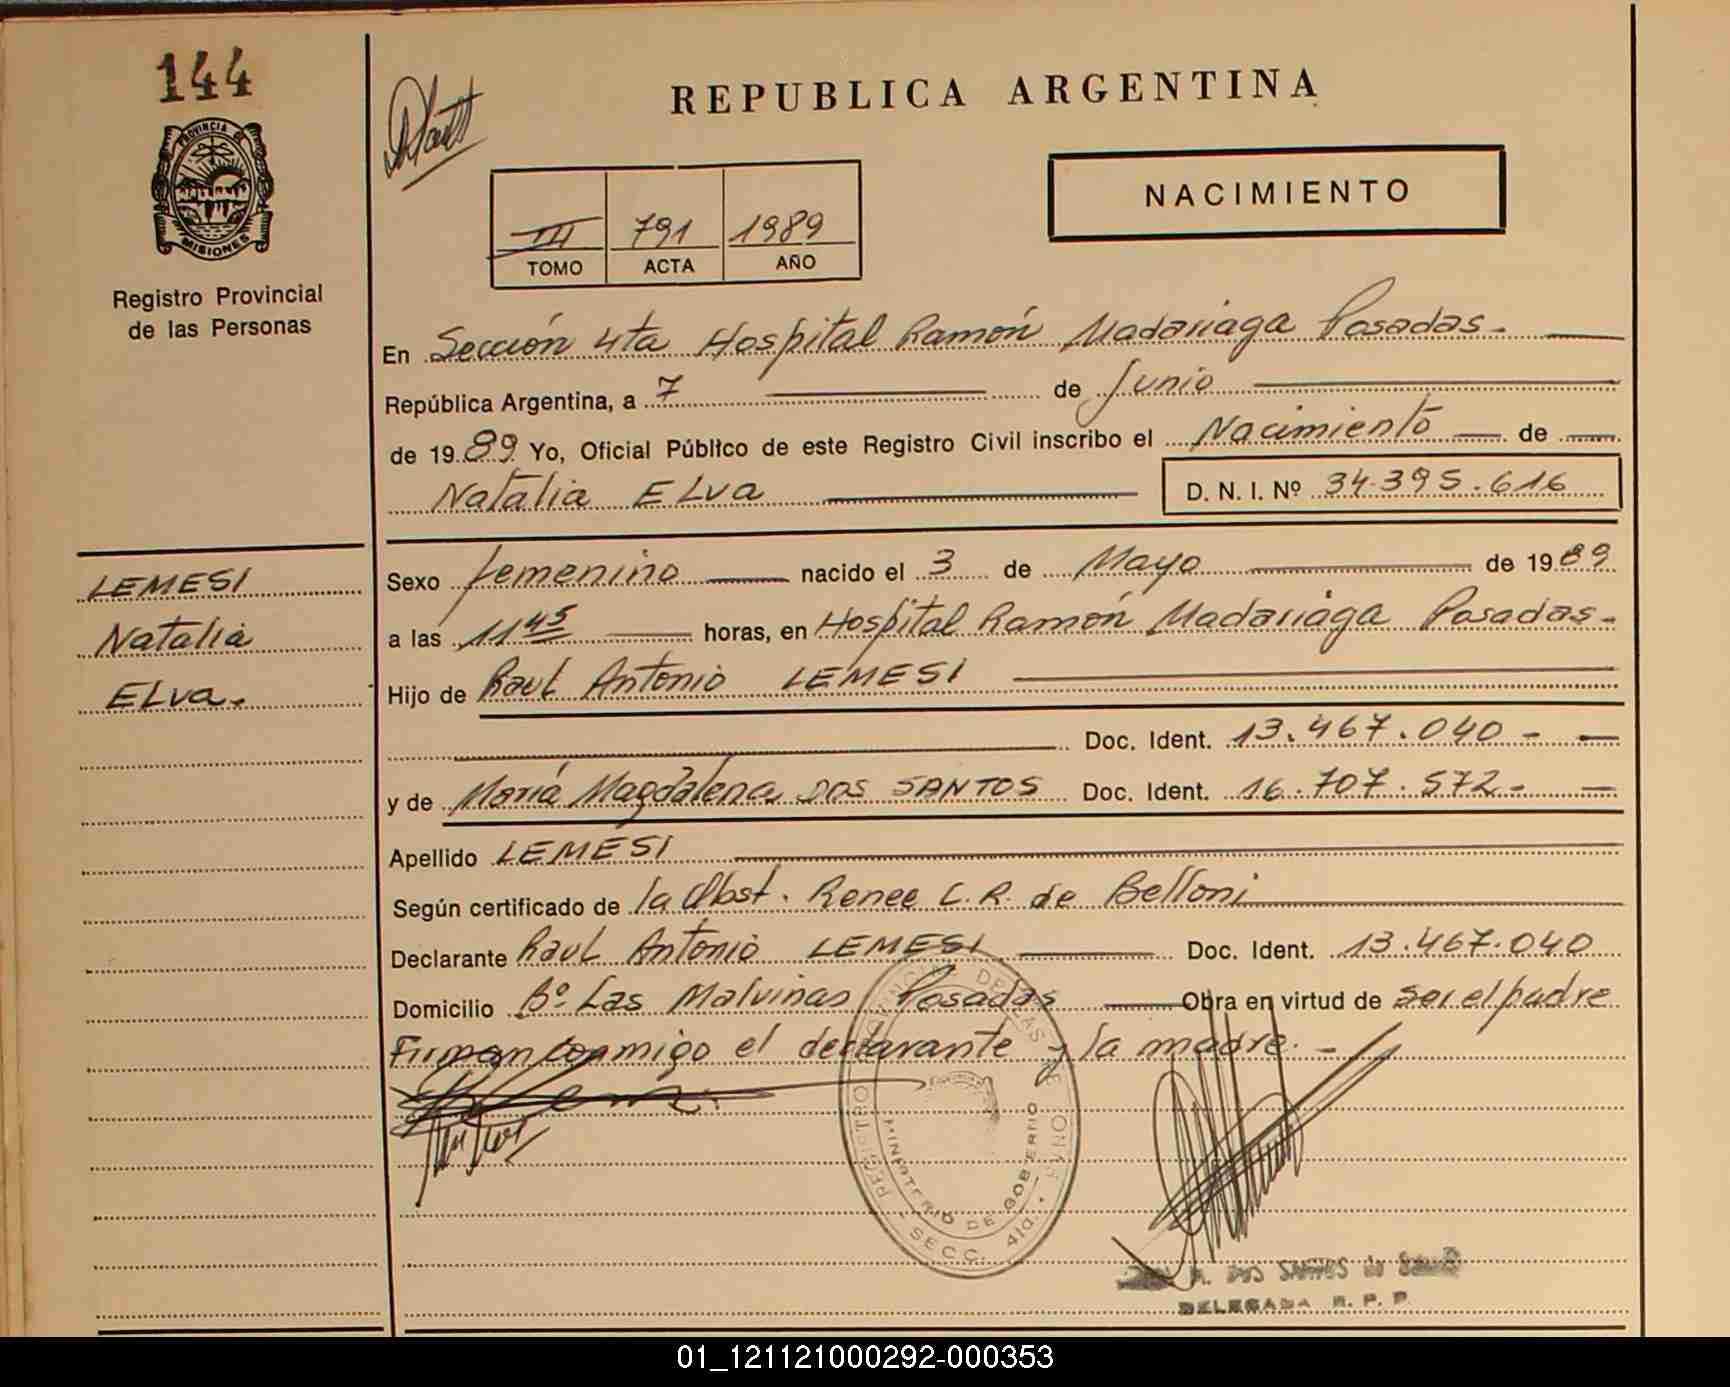 144
PROVINCIA DE
MISIONES
Registro Provincial
de las Personas
REPUBLICA ARGENTINA
NACIMIENTO
III 791 1989
TOMO ACTA AÑO
En Sección 4ta Hospital Ramón Madariaga Posadas.
República Argentina, a 7 de Junio
de 1989 Yo, Oficial Público de este Registro Civil inscribo el Nacimiento de
Natalia Elva D. N. I. Nº 34.395.616
LEMESI
Natalia
Elva.
Sexo femenino nacido el 3 de Mayo de 1989
a las 11 45 horas, en Hospital Ramón Madariaga Posadas.
Hijo de Raul Antonio LEMESI
Doc. Ident. 13.467.040 -
y de María Magdalena DOS SANTOS Doc. Ident. 16.707.572 -
Apellido LEMESI
Según certificado de la Obst. Renee L. R. de Belloni
Declarante Raul Antonio LEMESI Doc. Ident. 13.467.040
Domicilio Bº Las Malvinas Posadas Obra en virtud de ser el padre
Firman conmigo el declarante y la madre. -
MINISTERIO DE GOBIERNO
SECC. 4ta.
DOS SANTOS de
DELEGADA R. P. P.
01_121121000292-000353